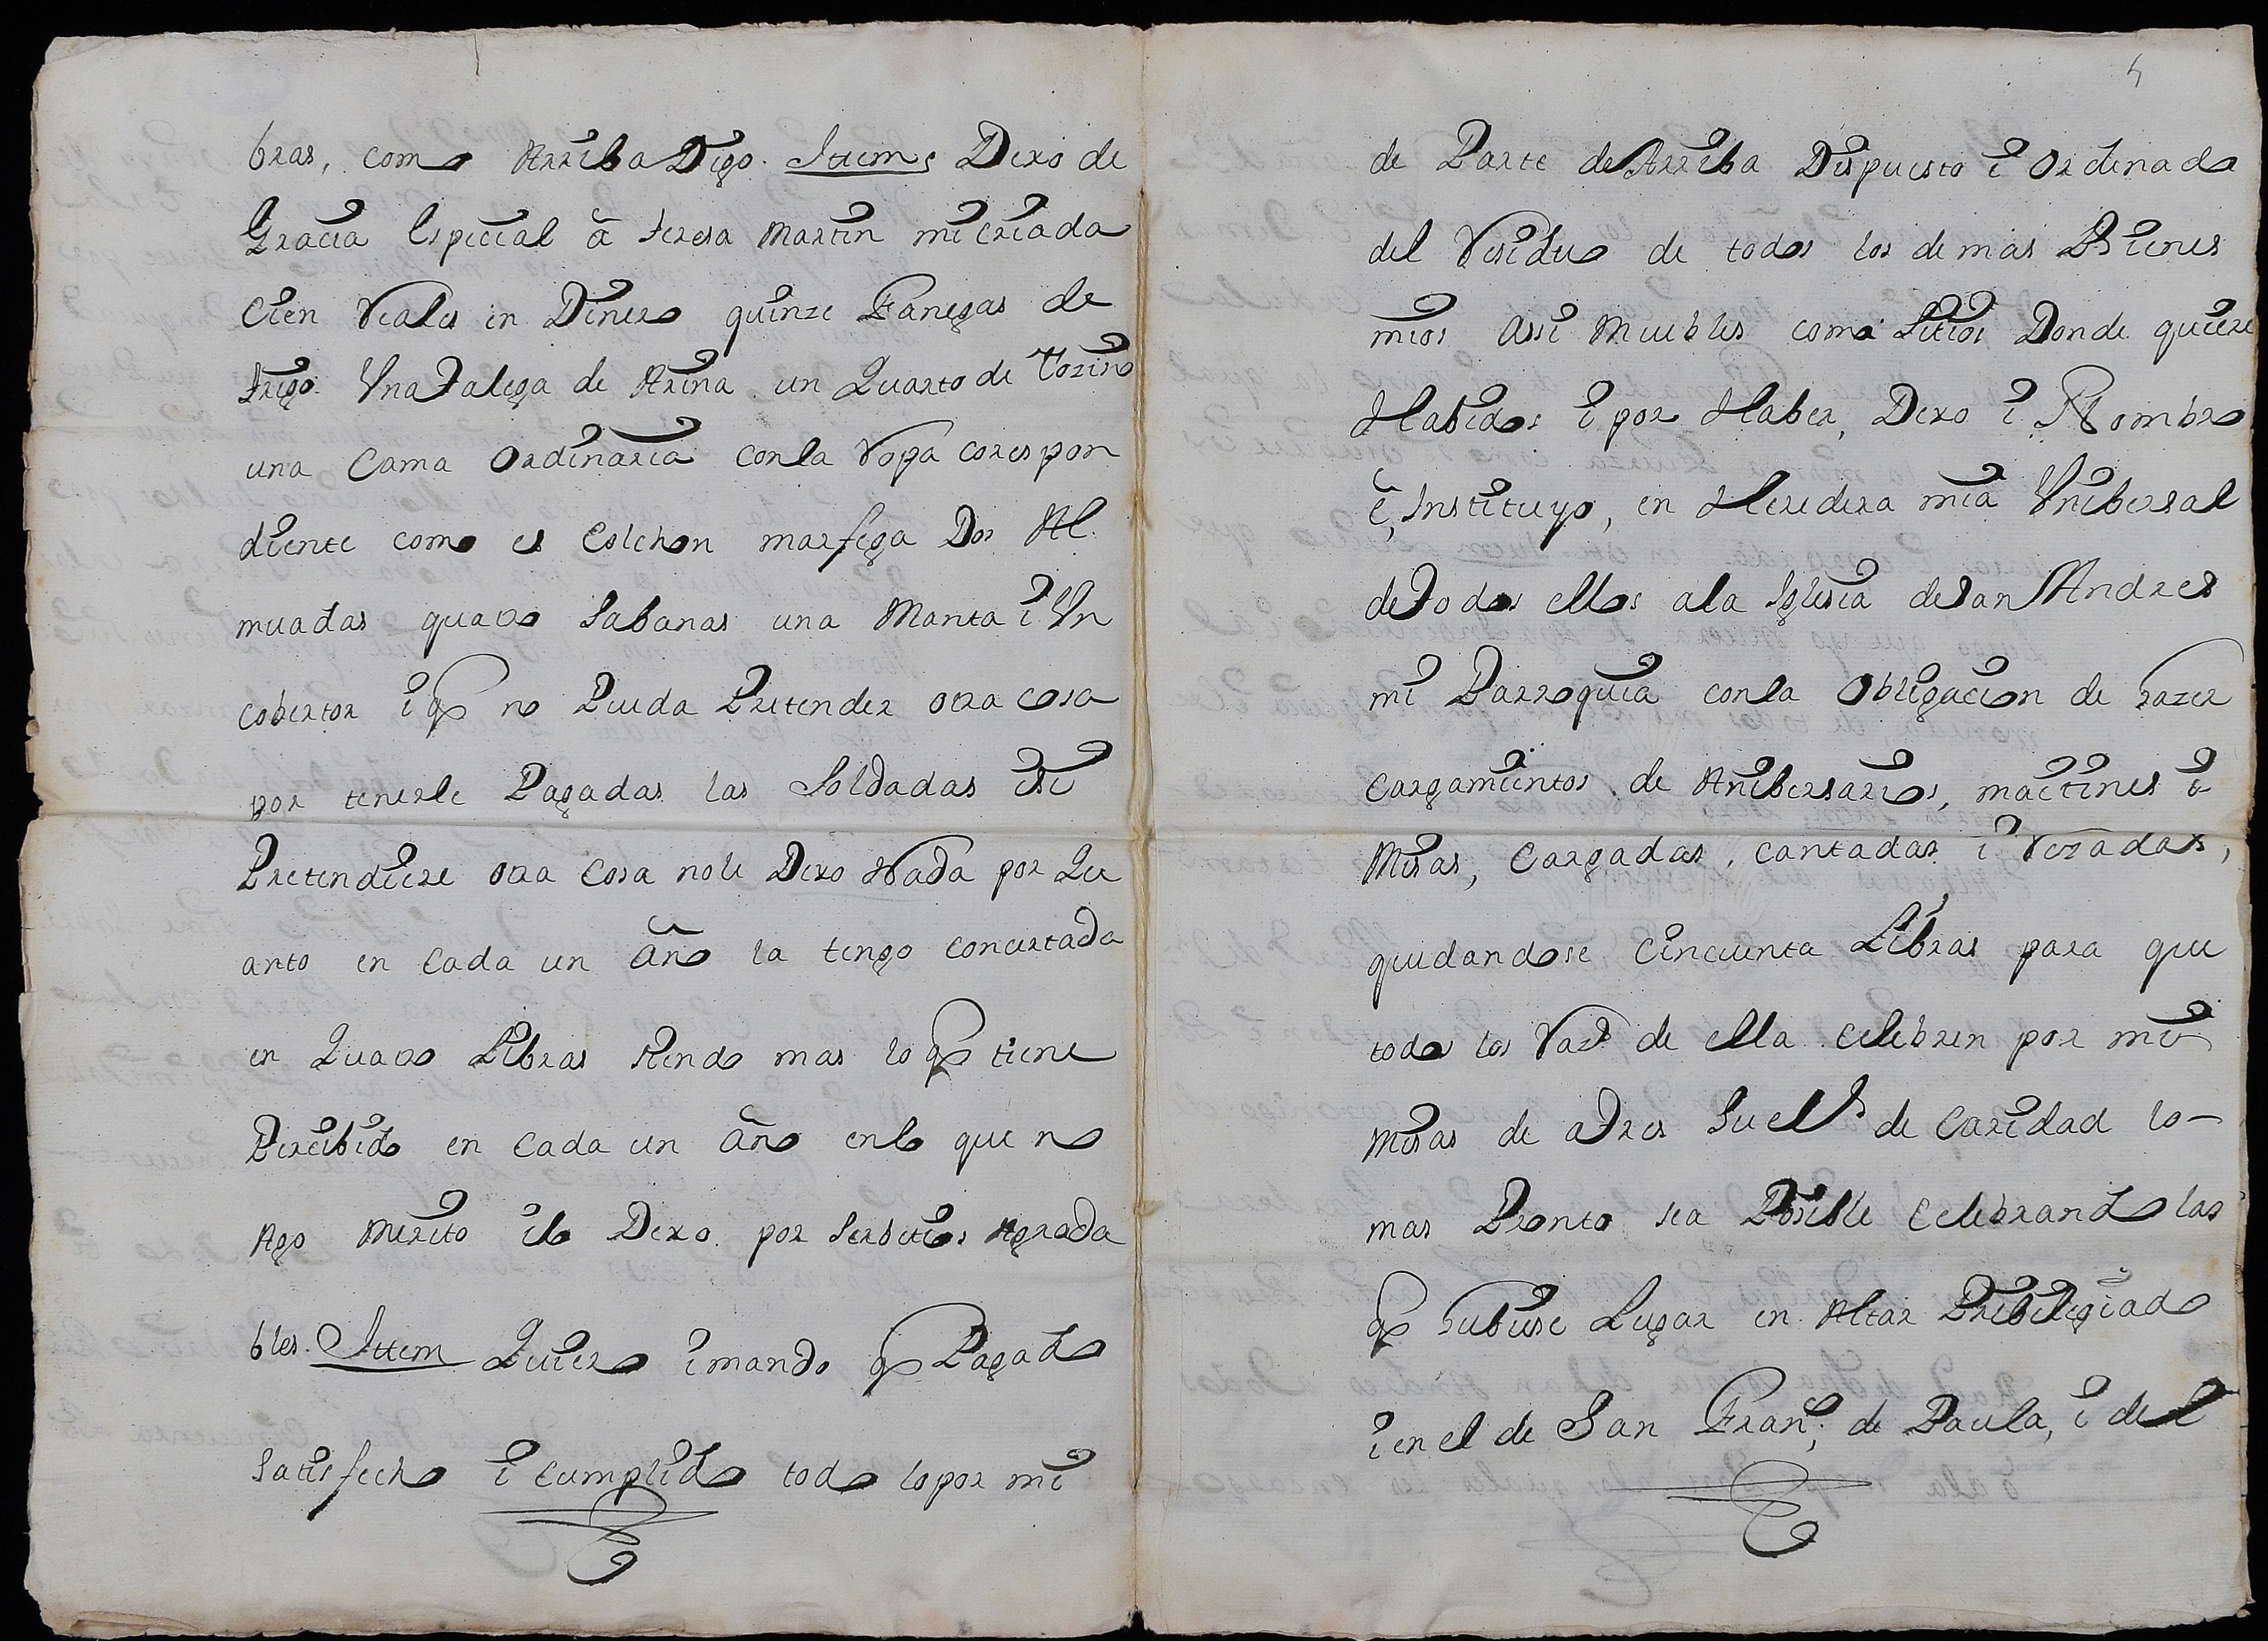 bras, como Arriba Digo. Ittem, Dexo de
Gracia Especial â teresa Martin mi criada
Cien Reales en Dinero quinze Fanegas de
trigo. Una Talega de Arina un Quarto de Tozino
una Cama Ordinaria con la Ropa corespon
diente como es Colchon marfega Dos Al
muadas quatro Sabanas una Manta i Un
cobertor i q̃ no Pueda Pretender otra cosa
por tenerle Pagadas las Soldadas i si
Pretendiere otra Cosa no le Dexo Nada por Qu
anto en Cada un Año la tengo concertada
en Quatro Libras siendo mas lo q̃ tiene
Percibido en Cada un Año en lo que no
Ago Merito i lo Dexo por Serbitios Agrada
bles. Ittem Quiero i mando q̃ Pagado
Satisfecho i Cumplido todo lo por mi
4
de Parte de Arriba Dispuesto i Ordenado
del Residuo de todos los demas Bienes
mios assi Muebles como Sitios Donde quiere
Habidos i por Haber, Dexo i Nombro
ê, Instituyo, en Heredera mia Unibersal
de Todos ellos a la Iglesia de San Andres
mi Parroquia con la Obligacion de hazer
Cargamientos de Anibersarios, maitines i
Misas, Cargadas, cantadas i Rezadas,
quedandose Cincuenta Libras para que
todos los Raz.s de ella Celebren por mi
Misas de a Tres Suel.s de Caridad lo
mas Pronto sea Posible Celebrandolas
q̃ hubiese Lugar en Altar Pribilegiado
i en el de San Fran.co de Paula, i del